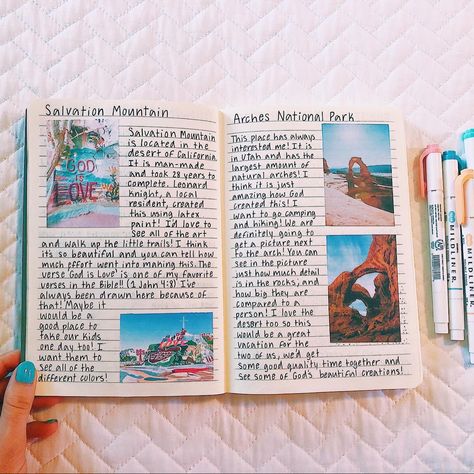 Salvation Mountain
Salvation Mountain
is located in the
desert of California.
It is man-made
and took 28 years to
complete. Leonard
Knight, a local
resident, created
this using latex
paint! I'd love to
see all of the art
and walk up the little trails! I think
it's so beautiful and you can tell how
much effort went into making this. The
verse 'God is Love' is one of my favorite
verses in the Bible!! (1 John 4:8) I've
always been drawn here because of
that! Maybe it
would be a
good place to
take our kids
one day too! I
want them to
see all of the
different colors!
GOD
IS
LOVE
Arches National Park
This place has always
interested me! It is
in Utah and has the
largest amount of
natural arches! I
think it is just
amazing how God
created this! I
want to go camping
and hiking! We are
definitely going to
get a picture next
to the arch! You can
see in the picture
just how much detail
is in the rocks, and
how big they are
compared to a
person! I love the
desert too so this
would be a great
vacation for the
two of us, we'd get
some good quality time together and
see some of God's beautiful creations!
MILDLINER
MILDLINER